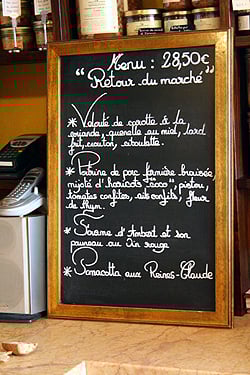 Menu : 28,50€
"Retour du marché"
* Velouté de carotte à la
coriande, quenelle au miel, lard
frit, crouton, ciboulette.
* Poitrine de porc fermière braisée,
mijoté d'haricots "coco", pistou,
tomates confites, ails confits, fleur
de thym.
* Fourme d'Ambert et son
pruneau au vin rouge
* Panacotta aux Reines-Claude